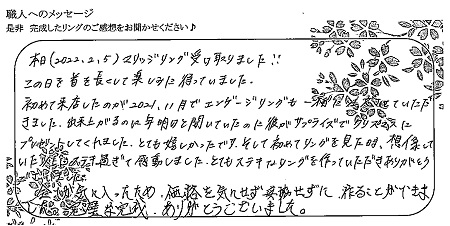 職人へのメッセージ
是非 完成したリングのご感想をお聞かせください♪
本日(2022.2.5)マリッジリング受け取りました!!
この日を首を長くして楽しみに待っていました。
初めて来店したのが2021.11月でエンゲージリングも一緒に ていただ
きました。出来上がるのに年明けと聞いていたのに彼がサプライズでクリスマスに
プレゼントしてくれました。とても嬉しかったです。そして初めてリングを見た時、想像して
いた 過ぎて感動しました。とてもステキなリングを作っていただきありがとう
気に入ったため、価格を気にせず妥協せずに作ることができま
した。 ありがとうございました。